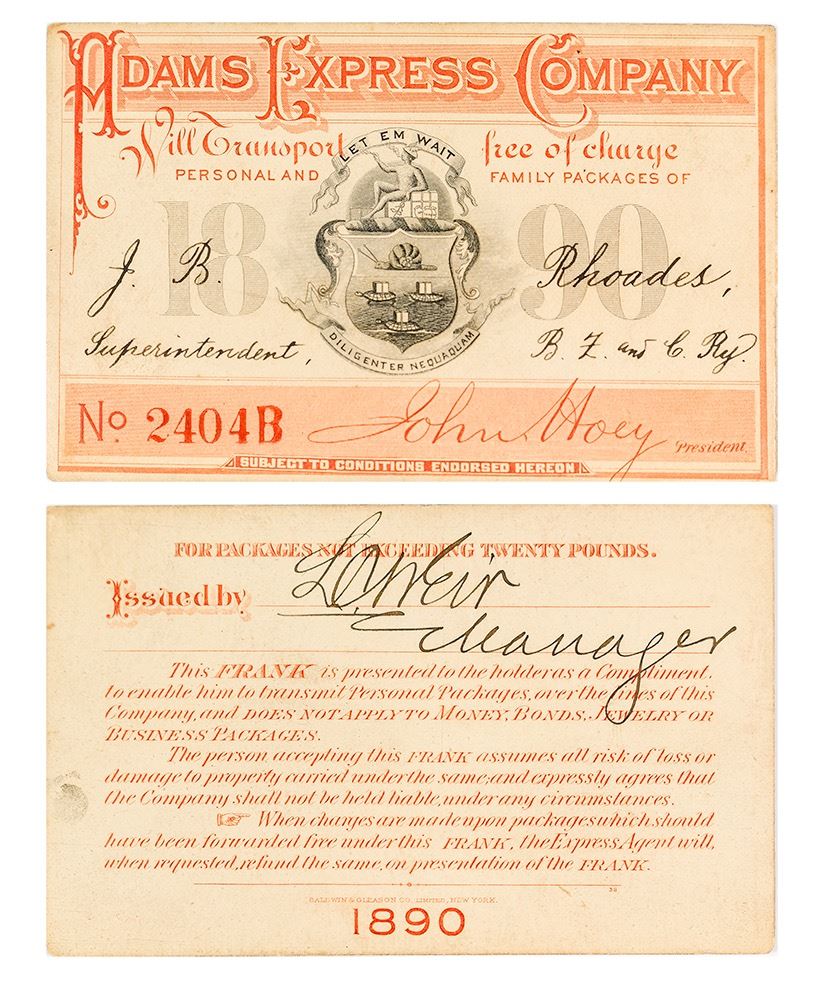 ADAMS EXPRESS COMPANY
Will Transport LET EM WAIT free of charge
PERSONAL AND FAMILY PACKAGES OF
1890
J. B. Rhoades,
Superintendent, B. Z. and C. Ry.
DILIGENTER NEQUAQUAM
No 2404B John Hoey President.
SUBJECT TO CONDITIONS ENDORSED HEREON
FOR PACKAGES NOT EXCEEDING TWENTY POUNDS.
Issued by L C Weir
Manager
This FRANK is presented to the holder as a Compliment,
to enable him to transmit Personal Packages, over the lines of this
Company, and DOES NOT APPLY TO MONEY, BONDS, JEWELRY OR
BUSINESS PACKAGES.
The person accepting this FRANK assumes all risk of loss or
damage to property carried under the same, and expressly agrees that
the Company shall not be held liable, under any circumstances.
☞ When charges are made upon packages which should
have been forwarded free under this FRANK, the Express Agent will,
when requested, refund the same, on presentation of the FRANK.
38
BALDWIN & GLEASON CO. LIMITED, NEW YORK.
1890